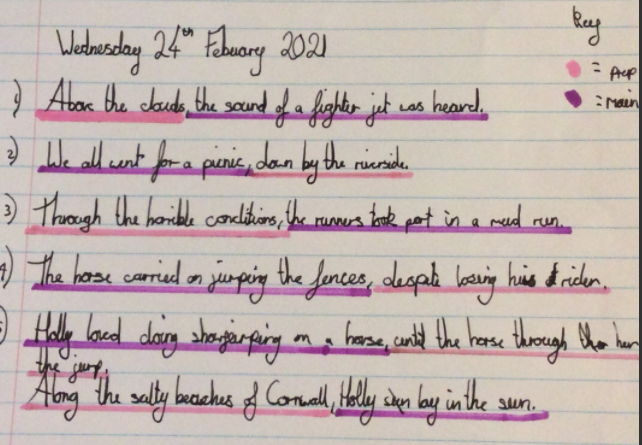 Key
Wednesday 24th Febuary 2021
= App
= Main
1) Above the clouds, the sound of a fighter jet was heard.
2) We all went for a picnic, down by the riverside.
3) Through the horrible conditions, the runners took part in a mud run.
4) The horse carried on jumping the fences, despite losing his rider.
Holly loved doing showjumping on a horse, until the horse through her
the jump.
Along the salty beaches of Cornwall, Holly sun bay in the sun.